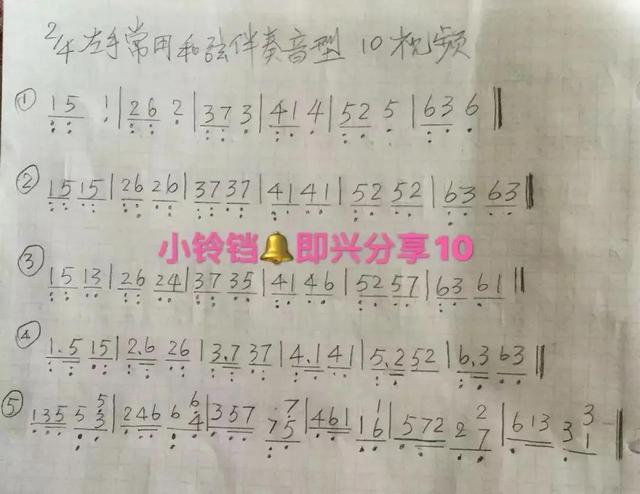 2/4左手常用和弦伴奏音型 10视频
① 15 1|26 2|37 3|41 4|52 5|63 6‖
② 15 15|26 26|37 37|41 41|52 52|63 63‖
小铃铛🔔即兴分享10
③ 15 13|26 24|37 35|41 46|52 57|63 61‖
④ 1.5 15|2.6 26|3.7 37|4.1 41|5.2 52|6.3 63‖
⑤ 135 5 5 3|246 6 6 4|357 7 7 5|461 1 1 6|572 2 2 7|613 3 3 1‖